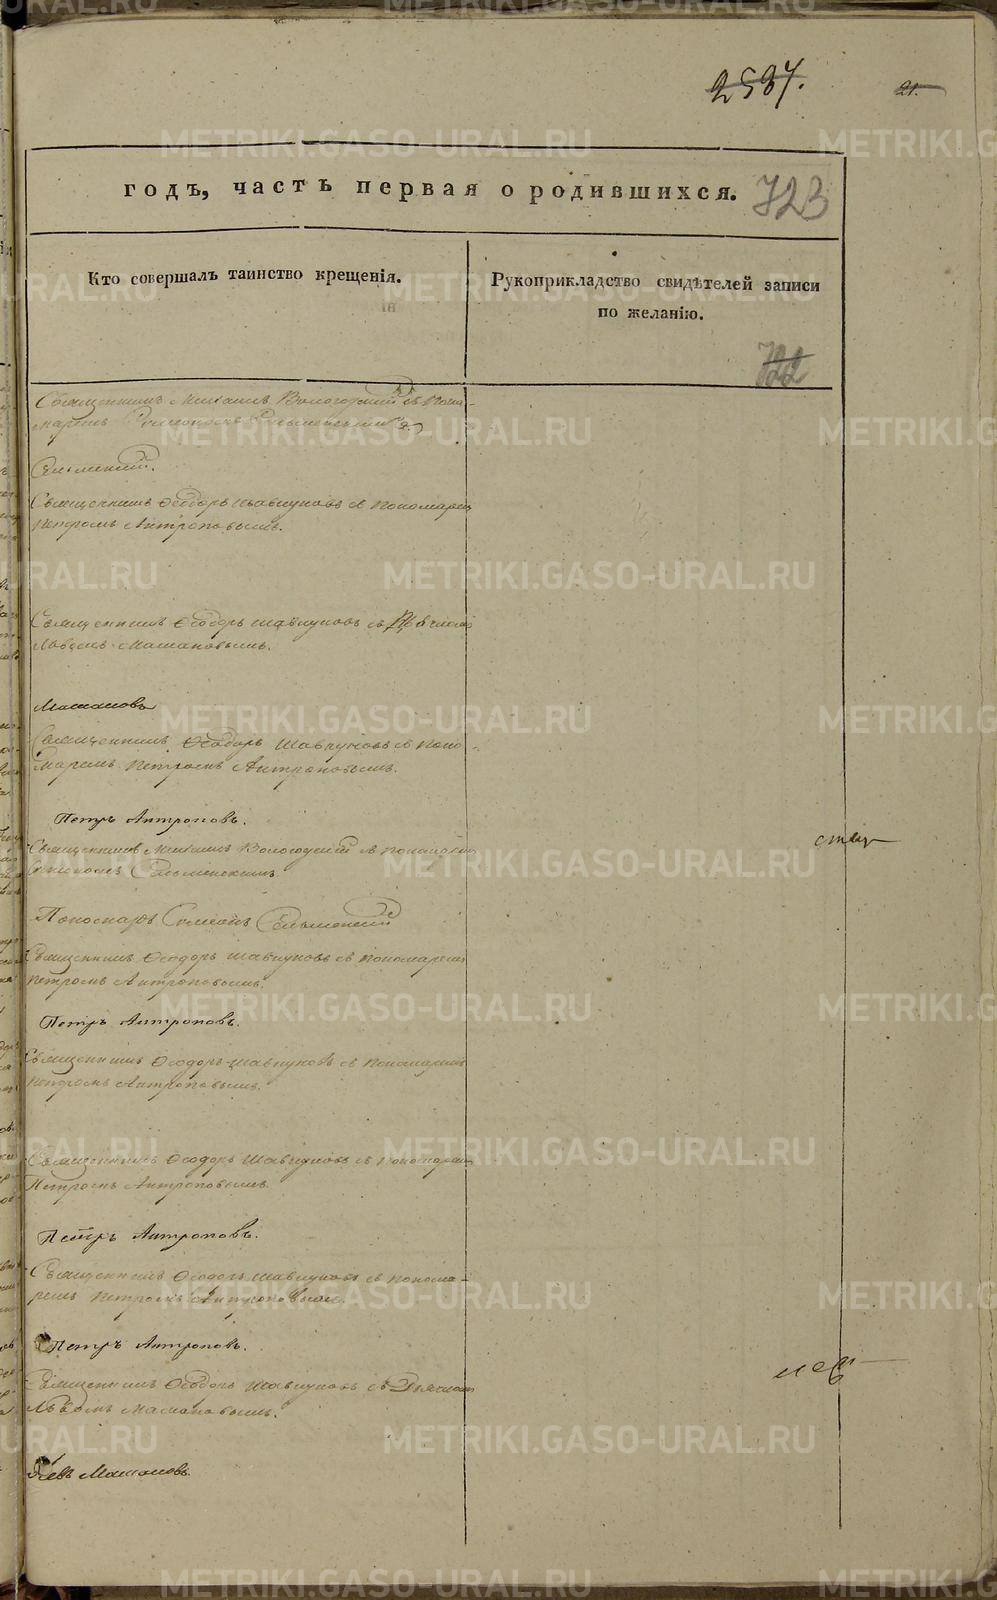 2534.
21.
годъ, часть первая о родившихся.
723
Кто совершалъ таинство крещенія.
Рукоприкладство свидѣтелей записи
по желанію.
722
Священникъ Михаилъ Вологодский съ Поно-
маремъ
Сельменский.
Священникъ Ѳеодоръ Шавкуновъ съ Пономаремъ
Петромъ Антроповымъ.
Священникъ Ѳеодоръ Шавкуновъ съ Дьячкомъ
Львомъ Мамановымъ.
Мамановъ
Священникъ Ѳеодоръ Шавкуновъ съ Поно-
маремъ Петромъ Антроповымъ.
Петръ Антроповъ.
Священникъ Михаилъ Вологодский съ Пономаремъ
Симеономъ Сельменскимъ.
Пономарь Симеонъ Сельменский
Священникъ Ѳеодоръ Шавкуновъ съ Пономаремъ
Петромъ Антроповымъ.
Петръ Антроповъ.
Священникъ Ѳеодоръ Шавкуновъ съ Пономаремъ
Петромъ Антроповымъ.
Священникъ Ѳеодоръ Шавкуновъ съ Пономаремъ
Петромъ Антроповымъ.
Петръ Антроповъ.
Священникъ Ѳеодоръ Шавкуновъ съ Понома-
ремъ Петромъ Антроповымъ.
Петръ Антроповъ.
Священникъ Ѳеодоръ Шавкуновъ съ Дьячкомъ
Львомъ Мамановымъ.
Левъ Мамановъ.
METRIKI.GASO-URAL.RU